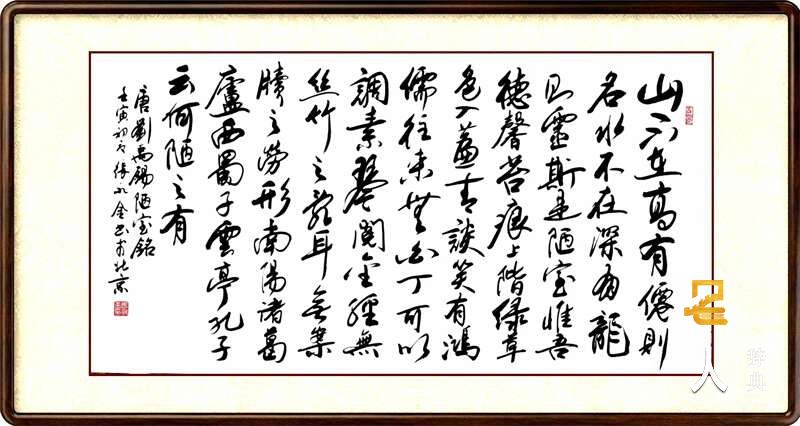 山不在高有僊則
名水不在深有龍
则靈斯是陋室惟吾
德馨苔痕上階緑草
色入簾青談笑有鴻
儒往来無白丁可以
調素琴閱金經無
絲竹之亂耳無案
牘之勞形南陽諸葛
廬西蜀子雲亭孔子
云何陋之有
唐劉禹錫陋室銘
壬寅初夏金书于北京
名人
辞典